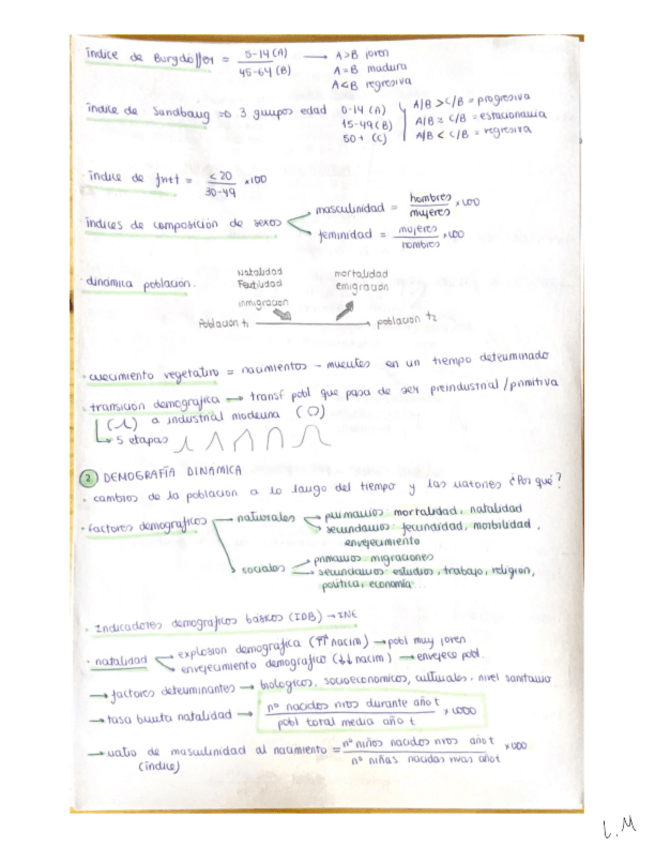 índice de Burgdöffer = 5-14 (A) / 45-64 (B) → A>B joven
A=B madura
A<B regresiva
índice de Sundbarg => 3 grupos edad 0-14 (A) A/B > C/B = progresiva
15-49 (B) A/B = C/B = estacionaria
50+ (C) A/B < C/B = regresiva
· índice de friz = <20 / 30-49 x100
índices de composición de sexos masculinidad = hombres / mujeres x 100
feminidad = mujeres / hombres x 100
· dinámica población. Natalidad mortalidad
Fertilidad emigración
inmigración
Población t1 → población t2
· crecimiento vegetativo = nacimientos - muertes en un tiempo determinado
· transición demográfica → transf pobl que pasa de ser preindustrial / primitiva
a industrial moderna
↳ 5 etapas
2 DEMOGRAFÍA DINÁMICA
· cambios de la población a lo largo del tiempo y las razones ¿Por qué?
· factores demográficos naturales primarios mortalidad, natalidad
secundarios fecundidad, morbilidad,
envejecimiento
sociales primarios migraciones
secundarios estudios, trabajo, religion,
política, economía...
· Indicadores demográficos básicos (IDB) → INE
· natalidad explosion demografica (↑↑ nacim) → pobl muy joven
envejecimiento demografico (↓↓ nacim) → envejece pobl.
→ factores determinantes → biologicos, socioeconomicos, culturales, nivel sanitario
→ tasa bruta natalidad → nº nacidos vivos durante año t / pobl total media año t x 1000
→ ratio de masculinidad al nacimiento = nº niños nacidos vivos año t / nº niñas nacidas vivas año t x 100
(índice)
L.M